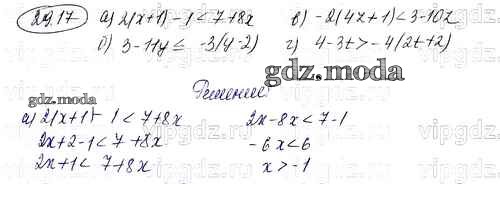 29.17 а) 2(x+1)-1<7+8x в) -2(4z+1)<3-10z
б) 3-11y≤ -3(y-2) г) 4-3t>-4(2t+2)
gdz.moda
Решение
gdz.moda
а) 2(x+1)-1<7+8x 2x-8x<7-1
2x+2-1<7+8x -6x<6
2x+1<7+8x x>-1